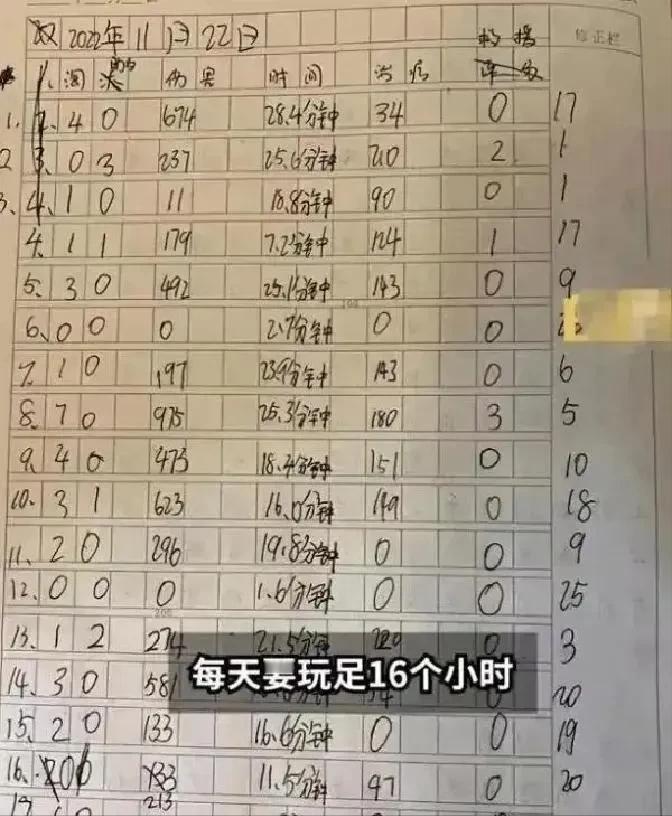 2022年11月22日 修正栏
淘汰 助攻 伤害 时间 治疗 救援
1. 4 0 674 28.4分钟 34 0 17
2 3. 0 3 237 25.6分钟 210 2 1
3. 4. 1 0 11 18.8分钟 90 0 1
4. 1 1 179 7.2分钟 124 1 17
5. 3 0 492 25.1分钟 143 0 9
6. 0 0 0 2.7分钟 0 0
7. 1 0 197 23.9分钟 143 0 6
8. 7 0 975 25.3分钟 180 3 5
9. 4 0 473 18.4分钟 151 0 10
10. 3 1 623 16.0分钟 149 0 18
11. 2 0 296 19.8分钟 0 0 9
12. 0 0 0 1.6分钟 0 0 25
13. 1 2 274 21.5分钟 0 3
每天要玩足16个小时
14. 3 0 581 20
15. 2 0 133 16.6分钟 0 0 19
16. 133 11.5分钟 97 0 20
17 213